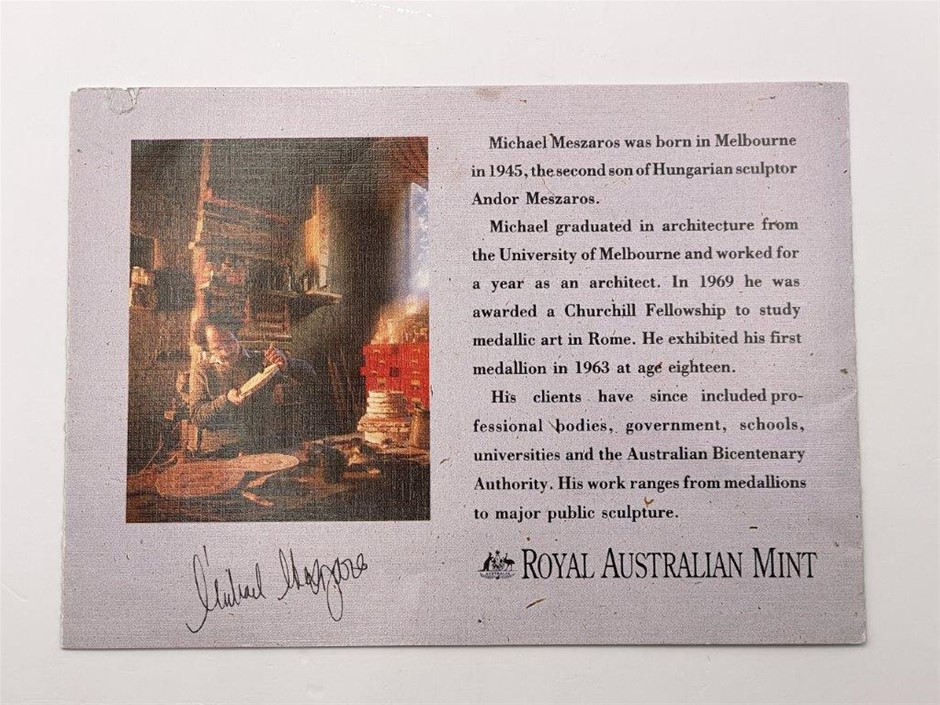 Michael Meszaros was born in Melbourne
in 1945, the second son of Hungarian sculptor
Andor Meszaros.
Michael graduated in architecture from
the University of Melbourne and worked for
a year as an architect. In 1969 he was
awarded a Churchill Fellowship to study
medallic art in Rome. He exhibited his first
medallion in 1963 at age eighteen.
His clients have since included pro-
fessional bodies, government, schools,
universities and the Australian Bicentenary
Authority. His work ranges from medallions
to major public sculpture.
Michael Meszaros
ROYAL AUSTRALIAN MINT